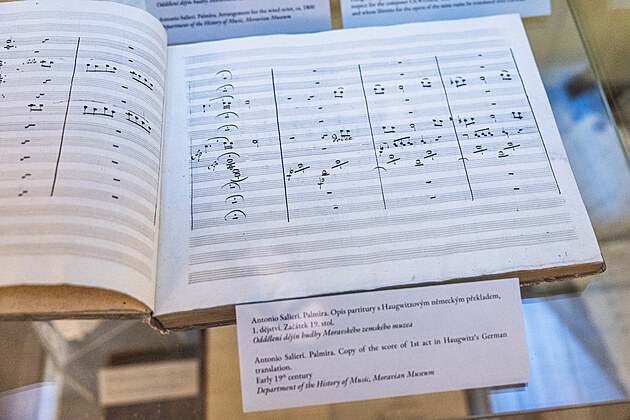 Oddělení dějin hudby Moravského
Antonio Salieri. Palmira, Arrangement for the wind octet, ca. 1800
Department of the History of Music, Moravian Museum
respect for the composer
and whose libretto for the opera of the same name he translated into
Antonio Salieri. Palmira. Opis partitury s Haugwitzovým německým překladem,
1. dějství. Začátek 19. stol.
Oddělení dějin hudby Moravského zemského muzea
Antonio Salieri. Palmira. Copy of the score of 1st act in Haugwitz's German
translation.
Early 19th century
Department of the History of Music, Moravian Museum